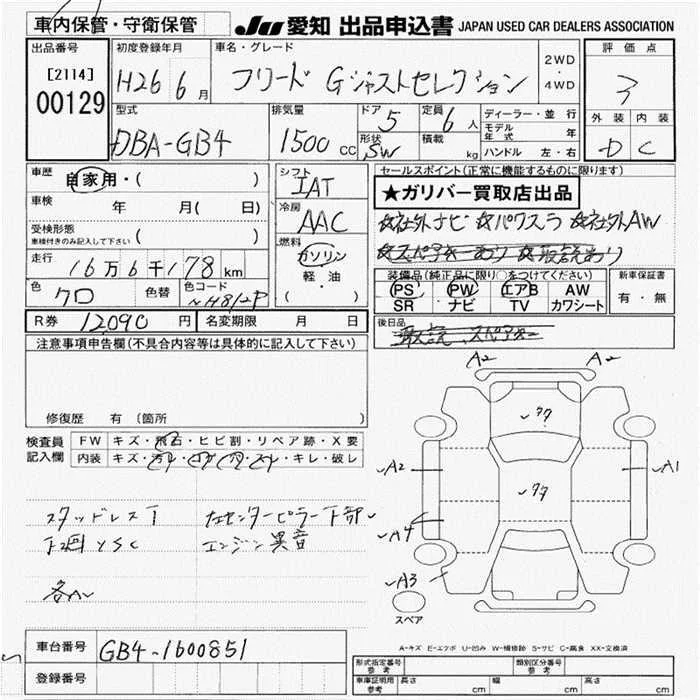 車内保管・守衛保管
JU 愛知 出品申込書 JAPAN USED CAR DEALERS ASSOCIATION
出品番号
[2114]
00129
初度登録年月
H26 6月
車名・グレード
フリード Gジャストセレクション
2WD
・
4WD
評価点
3
外装 内装
D C
型式
DBA-GB4
排気量
1500 CC
ドア
5
形状
SW
定員
6人
積載
kg
ディーラー・並行
モデル年式 年
ハンドル 左・右
車歴
自家用・( )
車検
年 月(日)
受検形態
車検付きのみ記入して下さい
( )
走行
16万6千178km
色
クロ
色替
色コード
NH812P
シフト
IAT
冷房
AAC
燃料
ガソリン
・
軽・油
( )
R券 12090円
名変期限 月 日
セールスポイント(正常に機能するものに限ります)
★ガリバー買取店出品
☆社外ナビ ☆パワスラ ☆社外AW
☆スペアキーあり ☆取説あり
装備品(純正品に限り○をつけてください)
PS PW エアB AW
SR ナビ TV カワシート
新車保証書
有・無
後日品
取説、スペアキー
注意事項申告欄(不具合内容等は具体的に記入して下さい)
修復歴 有〔箇所 〕
検査員記入欄
FW キズ・飛石・ヒビ割・リペア跡・X要
内装 キズ・汚レ・コゲ・穴・スレ・キレ・破レ
スタッドレスT
左センターピラー下部
下廻りSC
エンジン異音
各
A2 A2
77
A2
A1
77
A4
A3
スペア
A-キズ E-エクボ U-凹み W-補修跡 S-サビ C-腐食 XX-交換済
車台番号 GB4-1600851
登録番号
形式指定番号 参考
類別区分番号 参考
車庫証明用 参考
長さ cm
幅 cm
高さ cm